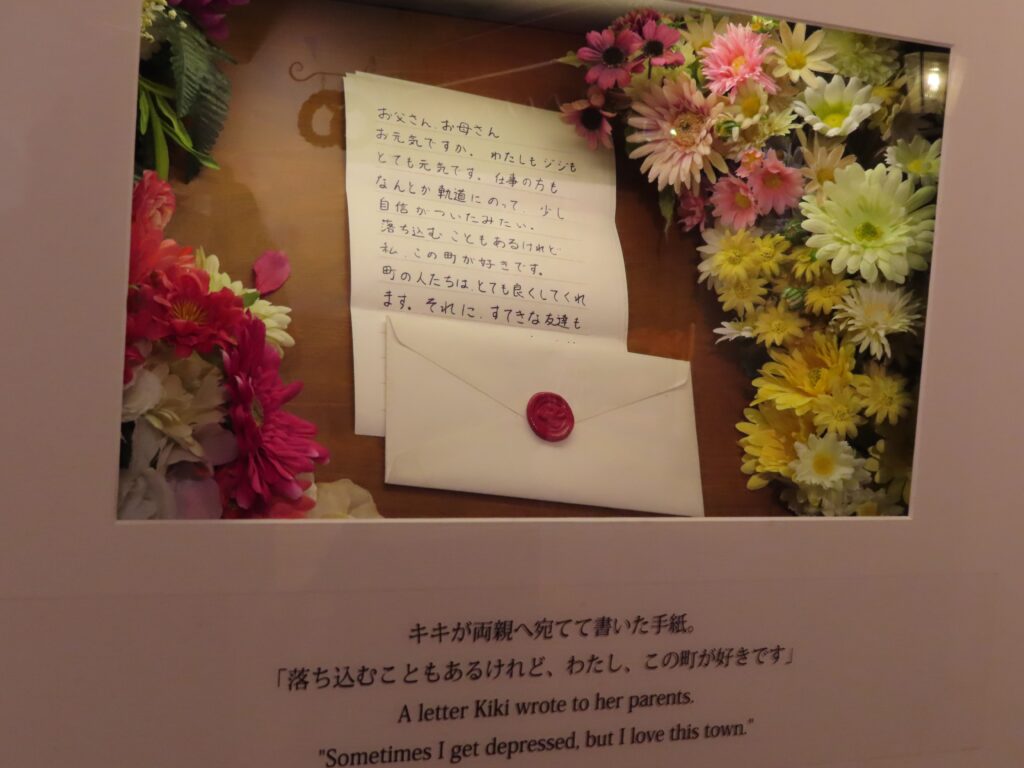 お父さん、お母さん
お元気ですか。わたしもジジも
とても元気です。仕事の方も
なんとか軌道にのって、少し
自信がついたみたい。
落ち込むこともあるけれど
私、この町が好きです。
町の人たちは、とても良くしてくれ
ます。それに、すてきな友達も
キキが両親へ宛てて書いた手紙。
「落ち込むこともあるけれど、わたし、この町が好きです」
A letter Kiki wrote to her parents.
"Sometimes I get depressed, but I love this town."